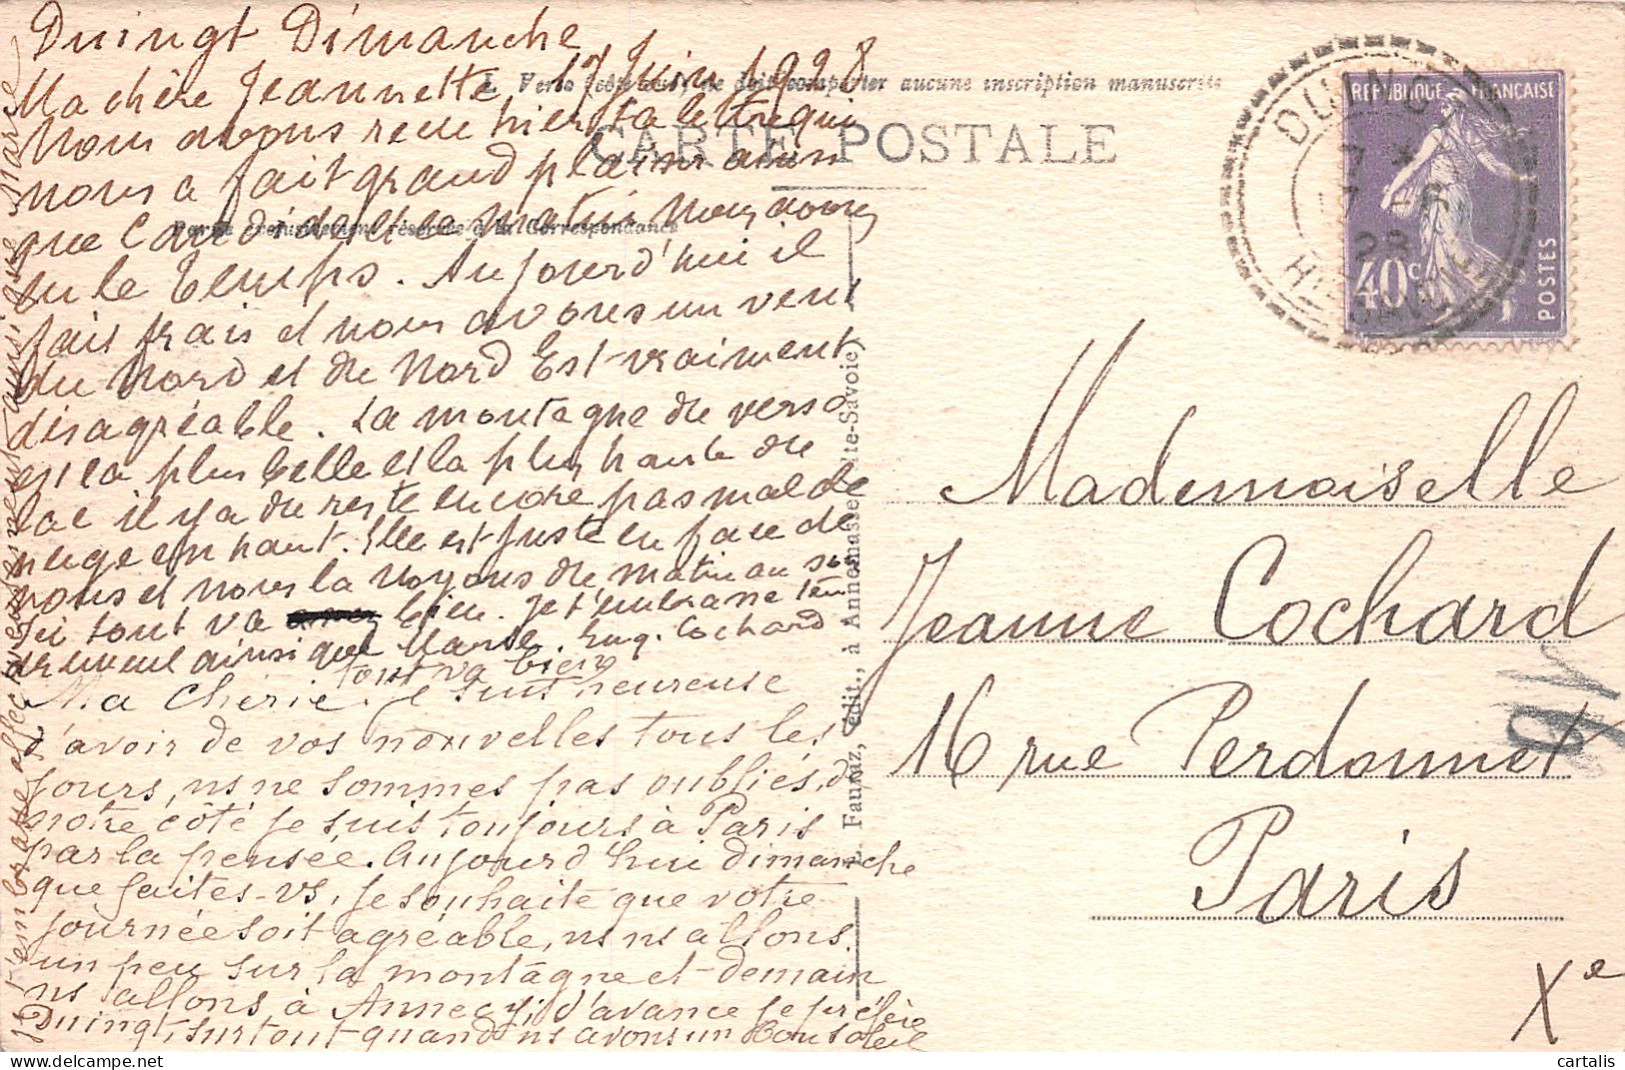 Duingt Dimanche
17 Juin 1928
Ma chère Jeannette
Nous avons reçu hier ta lettre qui
nous a fait grand plaisir ainsi
que l'autre ce matin Nous avons
eu le temps. Aujourd'hui il
fait frais et nous avons un vent
du Nord et du Nord Est vraiment
disagréable. La montagne du verso
est la plus belle et la plus haute du
lac il y a du reste encore pas mal de
neige en haut. Elle est juste en face de
nous et nous la voyons du matin au soir
Ici tout va bien. Je t'embrasse ten
drement ainsi que Marie. Eug. Cochard
tout va bien
Ma Chérie. je suis heureuse
d'avoir de vos nouvelles tous les
jours, ns ne sommes pas oubliés, de
notre côté je suis toujours à Paris
par la pensée. Aujourd'hui dimanche
que faites-vs, je souhaite que votre
journée soit agréable, ns ns allons
un peu sur la montagne et demain
ns allons à Annecy, d'avance je préfère
Duingt, surtout quand ns avons un bon soleil
je t'embrasse affectueusement ainsi que Marie
L. Verso doit comporter aucune inscription manuscrite
CARTE POSTALE
Partie exclusivement réservée à la Correspondance
L. Fauraz, édit., à Annemasse (Hte-Savoie)
DUINGT
28
REPUBLIQUE FRANÇAISE
40c
POSTES
Mademoiselle
Jeanne Cochard
16 rue Perdonnet
Paris
Xe
cartalis
delcampe.net